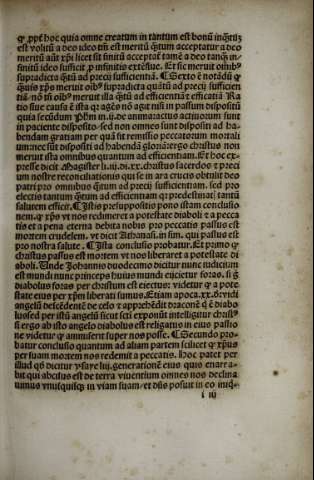 ꝙ ꝓpt hoc quia omne creatum in tantum est bonū inq̄tuʒ
est volitū a deo ideo tm̄ est meritū q̄tum acceptatur a deo
meritū aūt xp̄i licet sit finitū acceptat̄ tamē a deo tanq̄ in-
finitū ideo sufficit ꝓ infinitis Et sic meruit oībꝰ
supradicta q̄tū ad precij sufficientiā. ¶ Sexto ē notādū ꝙ
quāuis xp̄us meruit oībꝰ supradicta quātū ad precij sufficien
tiā nō tn̄ oībꝰ meruit illa q̄tū ad efficientiā ⁊ efficatiā Ra
tio siue causa ē ista qꝛ agēs nō agit nisi in passum dispositū
quia secūdum Phm̄ in.ij.de anima actus actiuorum sunt
in paciente disposito. sed non omnes sunt dispositi ad ha-
bendam gratiam per quā fit remissio peccatorum mortali
um nec sūt dispositi ad habendā gloriā ergo christus non
meruit ista omnibus quantum ad efficientiam. Et hoc ex-
presse dicit Magister li.iij.di.xx. christus sacerdos ⁊ preci
um nostre reconciliationis qui se in ara crucis obtulit deo
patri pro omnibus q̄tum ad precij sufficientiam. sed pro
electis tantum q̄ntum ad efficientiam qꝛ predestinatis tantū
salutem effecit. ¶ Istis presuppositis pono istam conclusio
nem. ꝙ xp̄us vt nos redimeret a potestate diaboli ⁊ a pecca
tis et a pena eterna debita nobis pro peccatis passus est
mortem crudelem. vt dicit Athanasi. in sim. qui passus est
pro nostra salute. ¶ Ista conclusio probatur. Et primo ꝙ
christus passus est mortem vt nos liberaret a potestate di
aboli. Unde Johannis duodecimo dicitur nunc iudicium
est mundi nunc princeps huius mundi eijcietur foras. si g̊
diabolus foras per christum est eiectus: videtur ꝙ a pote
state eius per xp̄m liberati sumus. Etiam apoca.xx.d: vidi
angelū descēdentē de celo ⁊ apprehēdit draconē ꝗ ē diabo
lus sed per istū angelū sicut scti exponūt intelligitur christꝰ
si ergo ab isto angelo diabolus est religatus in eius passio
ne videtur ꝙ amiserit super nos posse. ¶ Secundo pro-
batur conclusio quantum ad aliam partem scilicet ꝙ xp̄us
per suam mortem nos redemit a peccatis. Hoc patet per
illud qd̓ dicitur ysaye liij. generationē eius quis enarra-
bit qui abcisus est de terra viuentium omnes nos declina
uimus vnusquisqꝫ in viam suam. et dn̄s posuit in eo iniq̄-
i iij